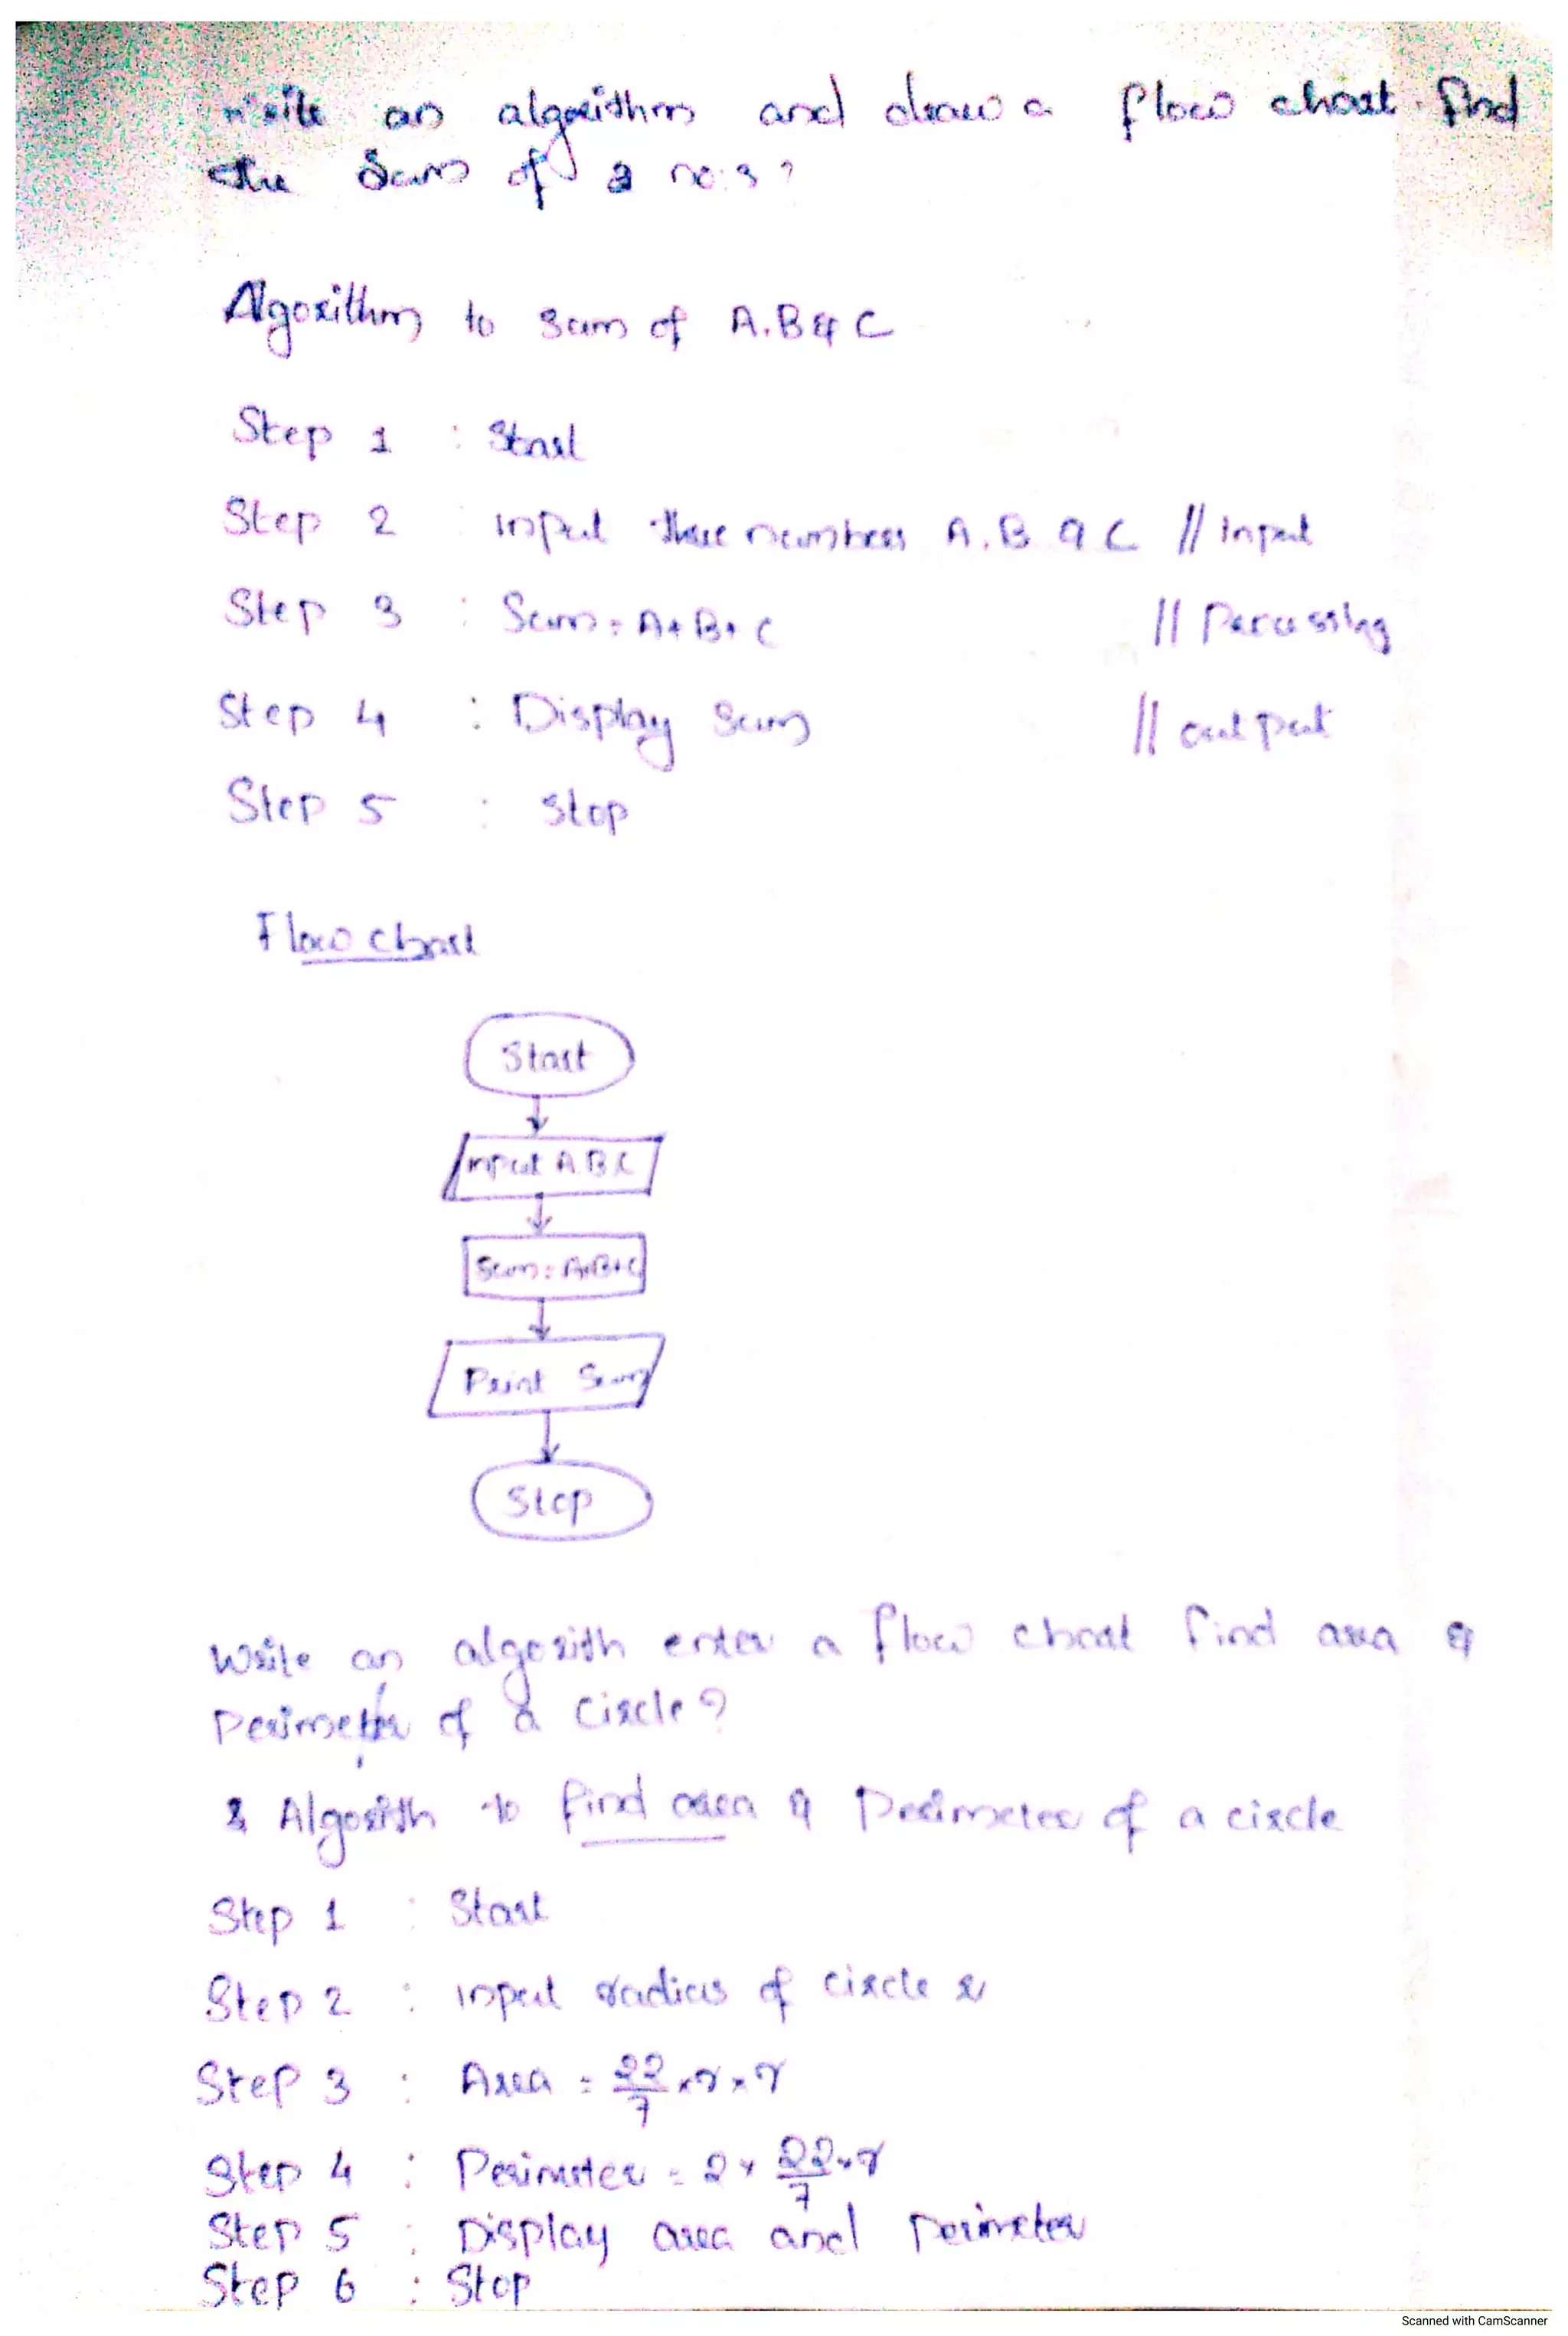 Write an algorithm and draw a flow chart. find
the Sum of 3 no.s?
Algorithm to sum of A.B & C
Step 1 : Start
Step 2 : input three numbers A.B & C // Input
Step 3 : Sum = A+B+C // Percussing
Step 4 : Display Sum // output
Step 5 : stop
Flow chart
Start
input A.B.C
Sum = A+B+C
Print Sum
Stop
Write an algorith enter a flow chart find area &
Perimeter of a Circle?
Algorith to find area & Perimeter of a circle
Step 1 : Start
Step 2 : input radius of circle r
Step 3 : Area = 22/7 × r × r
Step 4 : Perimeter = 2 × 22/7 × r
Step 5 : Display area and Perimeter
Step 6 : Stop
Scanned with CamScanner